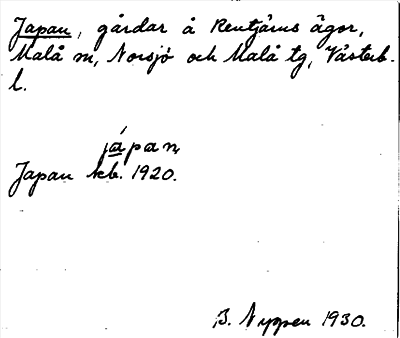 Japan, gårdar å Rentjärns ägor,
Malå sn, Norsjö och Malå tg, Västerb.
l.
jápan
Japan kb. 1920.
B. Nyppen 1930.